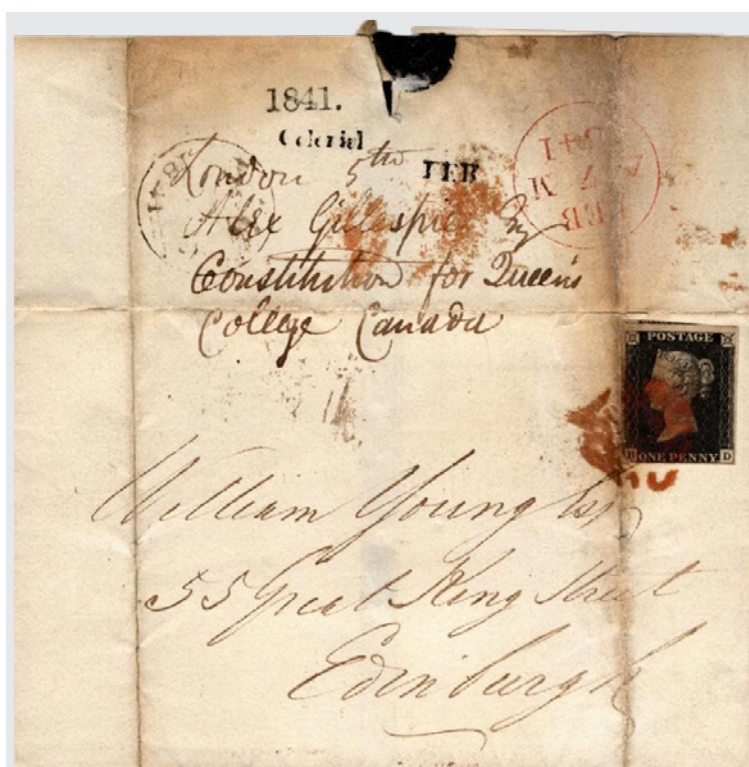 1841.
Colonial
FEB
London 5th
Alex Gillespie Esq
Constitution for Queen's
College Canada
POSTAGE
ONE PENNY D
William Young Esq
55 Great King Street
Edinburgh